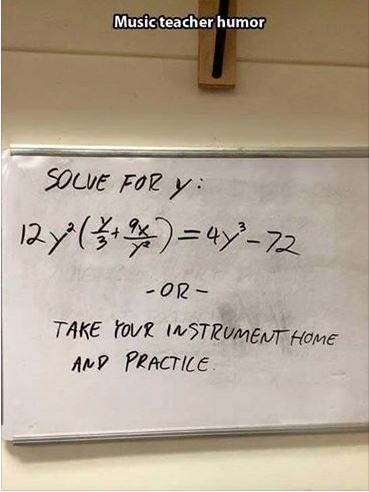 Music teacher humor
SOLVE FOR y:
12y²(y/3 + 9x/y²) = 4y³ - 72
- OR -
TAKE YOUR INSTRUMENT HOME
AND PRACTICE.